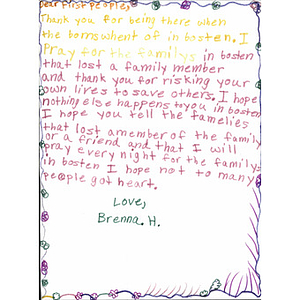 Dear First People,
Thank you for being there when
the boms whent of in bosten. I
Pray for the familys in bosten
that lost a family member
and thank you for risking your
own lives to save others. I hope
nothing else happens to you in bosten
I hope you tell the famelies
that lost a member of the family
or a friend and that I will
pray every night for the familys
in bosten I hope not to many
people got heart.
Love,
Brenna. H.